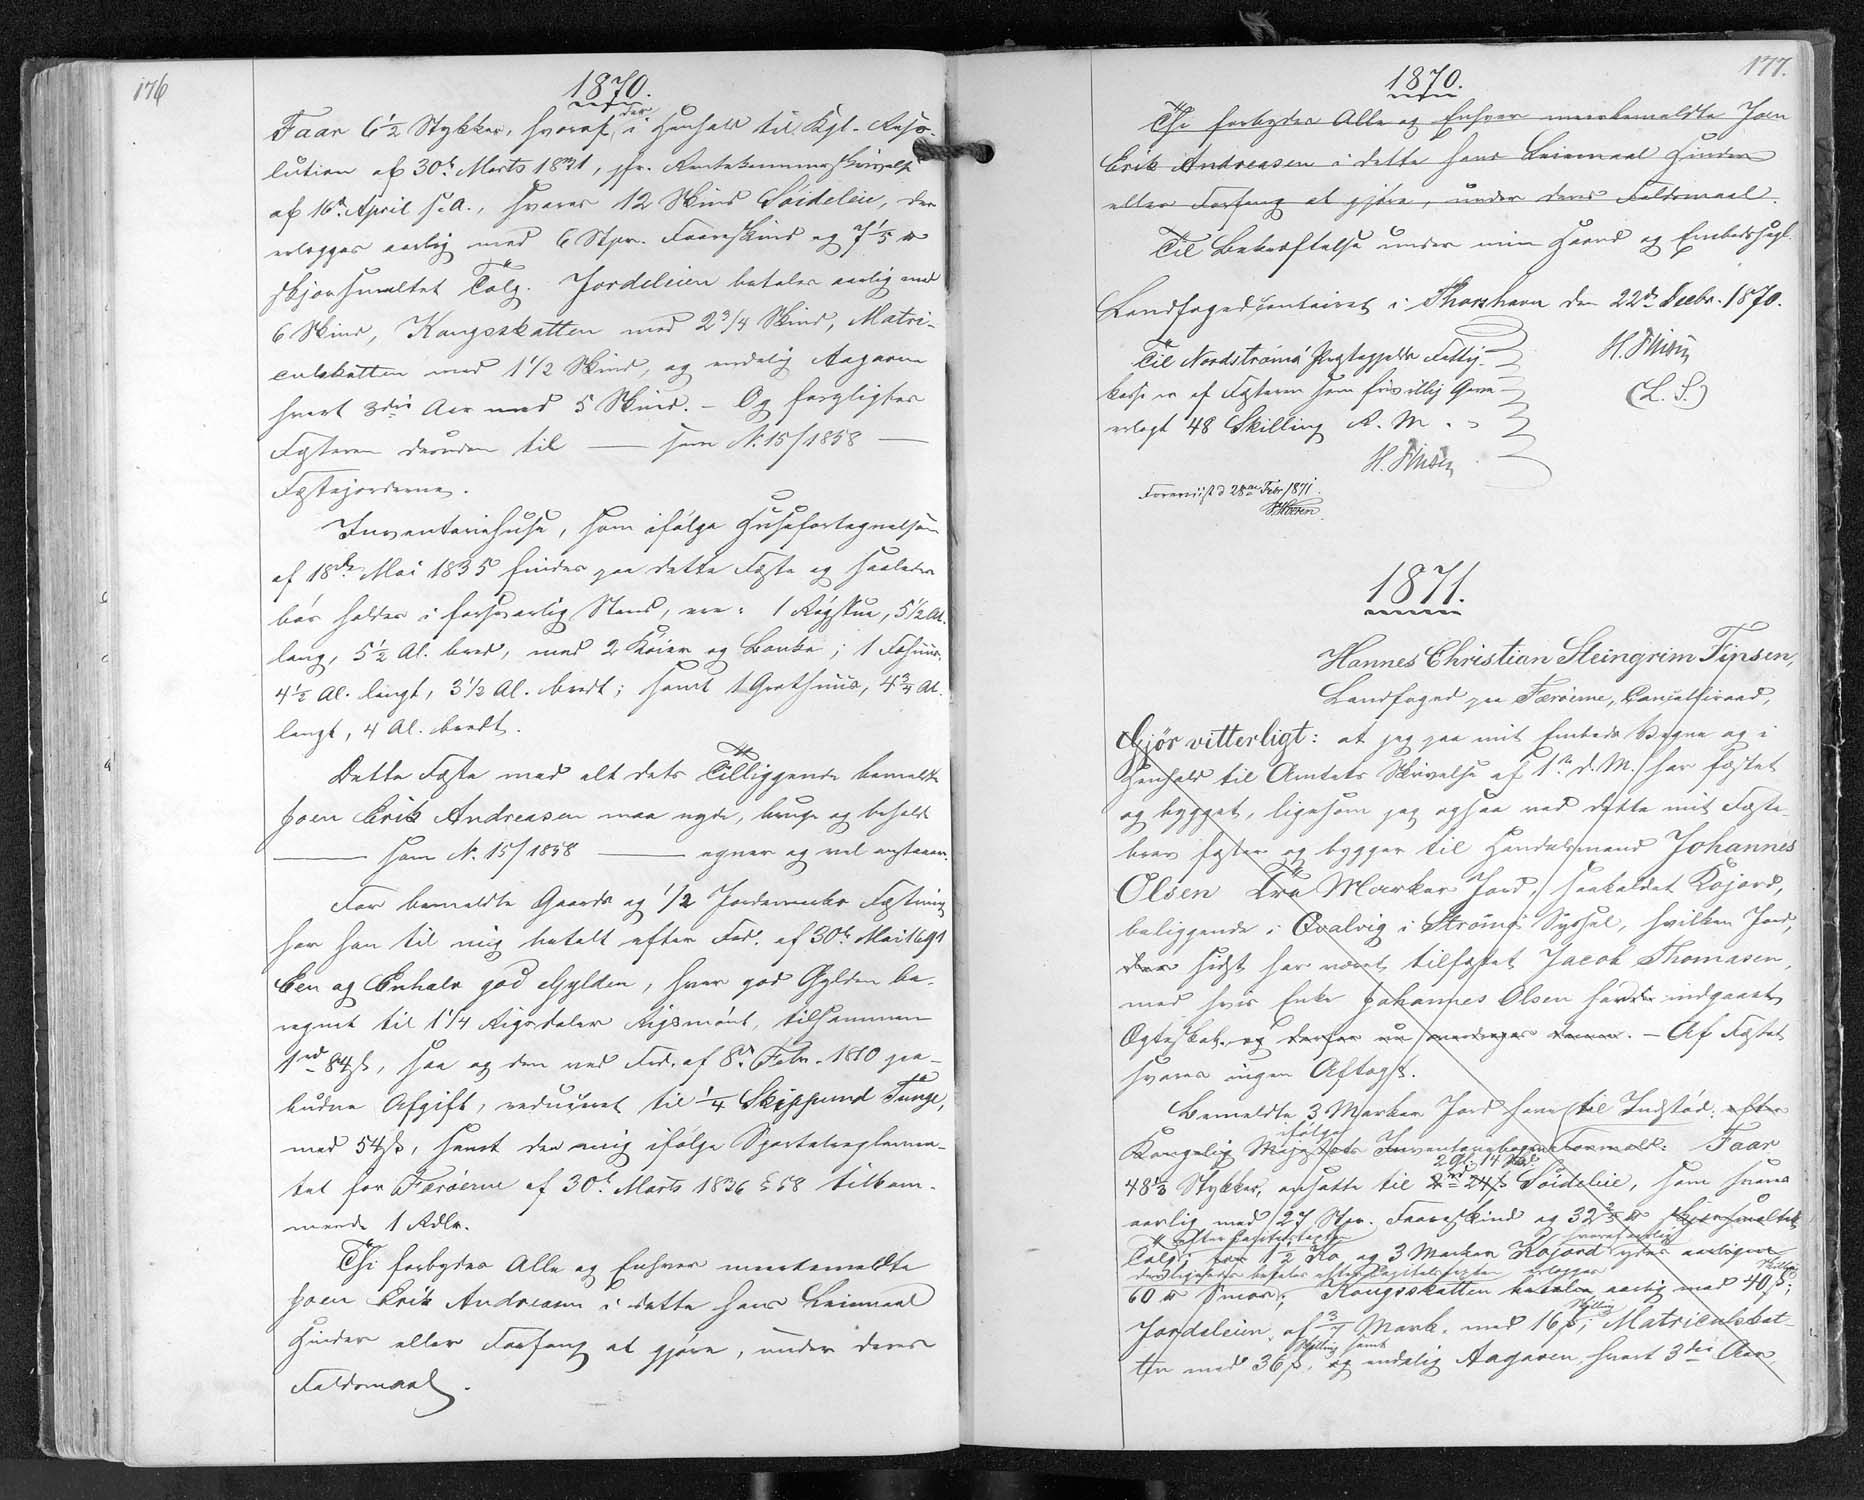 176
1870.
Faar 6 1/2 Stykker, hvoraf, der i Henhold til Kgl. Reso-
lution af 30te Marts 1831, jfr. Rentekammerskrivelse
af 16de April s. A., svares 12 Skind Söideleie, der
erlægges aarlig med 6 Stpr. Faareskind og 7 1/5 ℔
skjörsmeltet Talg. Jordeleien betales aarlig med
6 Skind, Kongsskatten med 2 3/4 Skind, Matri-
culskatten med 1 1/2 Skind, og endelig Aagaven
hvert 3die Aar med 5 Skind. – Og forpligtes
Fæsteren desuden til — som N. 15/1858 —
Fæstejorderne.
Inventariehuse, som ifölge Husefortegnelsen
af 18de Mai 1835 findes paa dette Fæste og saaledes
bör holdes i forsvarlig Stand, ere: 1 Rögstue, 5 1/2 Al.
lang, 5 1/2 Al. bred, med 2 Köier og Bænke; 1 Fæhuus,
4 1/2 Al. langt, 3 1/2 Al. bredt; samt 1 Grothuus, 4 3/4 Al.
langt, 4 Al. bredt.
Dette Fæste med alt dets Tilliggende bemeldte
Joen Erik Andreasen maa nyde, bruge og beholde
— som N. 15/1858 — egner og vel anstaaer.
For bemeldte Gaards og 1/2 Jordemarks Fæstning
har han til mig betalt efter Fod. af 30te Mai 1691
Een og Enhalv god Gylden, hver god Gylden be-
regnet til 1 1/4 Rigsdaler Rigsmönt, tilsammen
1rd 84ß, saa og den ved Fod. af 8de Febr. 1810 paa-
budne Afgift, reduceret til 1/4 Skippund Tunge,
med 54ß, samt den mig ifölge Sportelreglemen-
tet for Færöerne af 30te Marts 1836 § 58 tilkom-
mende 1 Rdlr.
Thi forbydes Alle og Enhver meerbemeldte
Joen Erik Andreasen i dette hans Leiemaal
Hinder eller Forfang at gjöre, under deres
Faldsmaal.
177.
1870.
Thi forbydes Alle og Enhver meerbemeldte Joen
Erik Andreasen i dette hans Leiemaal Hinder
eller Forfang at gjöre, under deres Faldsmaal.
Til Bekræftelse under min Haand og Embedssegl.
Landfogedcontoiret i Thorshavn den 22de Decbr. 1870.
Til Nordströmö Præstegjelds Fattig-
kasse er af Fæsteren som frivillig Gave
erlagt 48 Skilling R. M.
H. Finsen
(L. S.)
H. Finsen
Foreviist d 28de Febr 1871.
1871.
Hannes Christian Steingrim Finsen,
Landfoged paa Færöerne, Cancelliraad,
Gjör vitterligt: at jeg paa mit Embeds Vegne og i
Henhold til Amtets Skrivelse af 1ste d. M. har fæstet
og bygget, ligesom jeg ogsaa ved dette mit Fæste-
brev fæster og bygger til Handelsmand Johannes
Olsen Tre Marker Jord, saakaldet Kojord,
beliggende i Qvalvig i Strömö Syssel, hvilken Jord,
der sidst har været tilfæstet Jacob Thomasen,
med hvis Enke Johannes Olsen har indgaaet
Ægteskab. og derfor nu. – Af Fæstet
svares ingen Aftægt.
Bemeldte 3 Marker Jord have til Indstöd: efter
ifölge
Kongelig Majestæts Inventariebogens Formeld: Faar
2 Gl. 14 Skd.
48 1/3 Stykker, ansatte til 2rd 24ß Söideleie, som svares
aarlig med 27 Stpr. Faareskind og 32 2/5 ℔ skjörsmeltet
efter Capitelstaxten hvoraf
Talg; 1 1/2 Ko og 3 Marker Kojord ydes aarligen
betales efter Capitelstaxten erlægges Skilling
60 ℔ Smör; Kongsskatten betales aarlig med 40ß;
Skilling
Jordeleien af 3/7 Mark. med 16ß; Matriculskat-
Skilling samt
ten med 36ß, og endelig Aagaven hvert 3die Aar